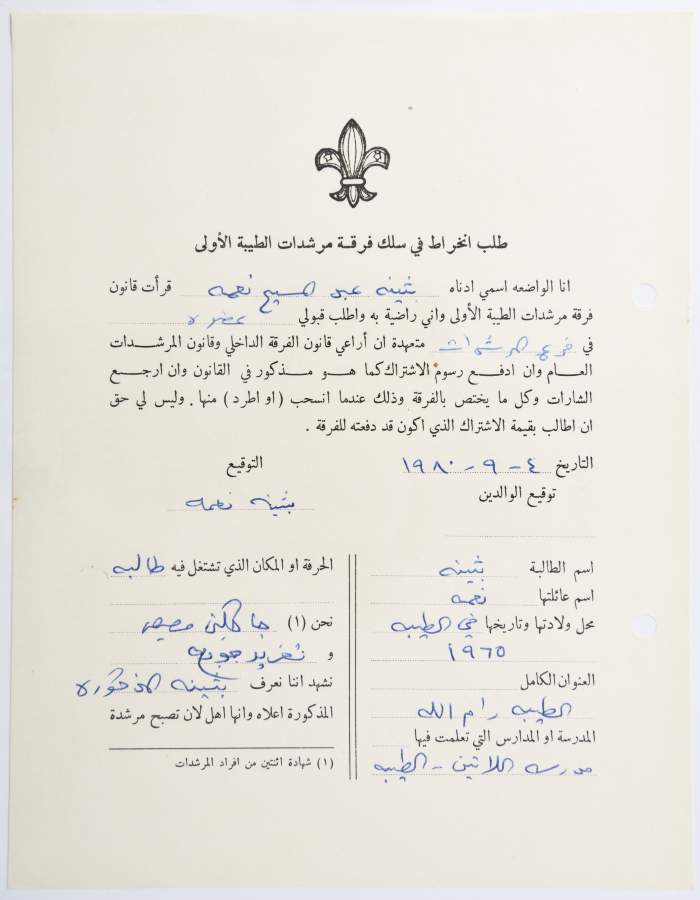 طلب انخراط في سلك فرقة مرشدات الطيبة الأولى
انا الواضعه اسمي ادناه بثينه عبد المسيح نعمه قرأت قانون
فرقة مرشدات الطيبة الأولى واني راضية به واطلب قبولي عضوه
في فرع المرشدات متعهدة ان أراعي قانون الفرقة الداخلي وقانون المرشدات
العام وان ادفع رسوم الاشتراك كما هو مذكور في القانون وان ارجع
الشارات وكل ما يختص بالفرقة وذلك عندما انسحب (او اطرد) منها. وليس لي حق
ان اطالب بقيمة الاشتراك الذي اكون قد دفعته للفرقة.
التاريخ ٤ - ٩ - ١٩٨٠ التوقيع
توقيع الوالدين
بثينه نعمه
اسم الطالبة بثينه
اسم عائلتها نعمه
محل ولادتها وتاريخها في الطيبه
١٩٦٥
العنوان الكامل
الطيبه رام الله
المدرسة او المدارس التي تعلمت فيها
مدرسه اللاتين - الطيبه
الحرفة او المكان الذي تشتغل فيه طالبه
نحن (١) جاكلين
و تغريد
نشهد اننا نعرف بثينه المذكوره
المذكورة اعلاه وانها اهل لان تصبح مرشدة
(١) شهادة اثنتين من افراد المرشدات